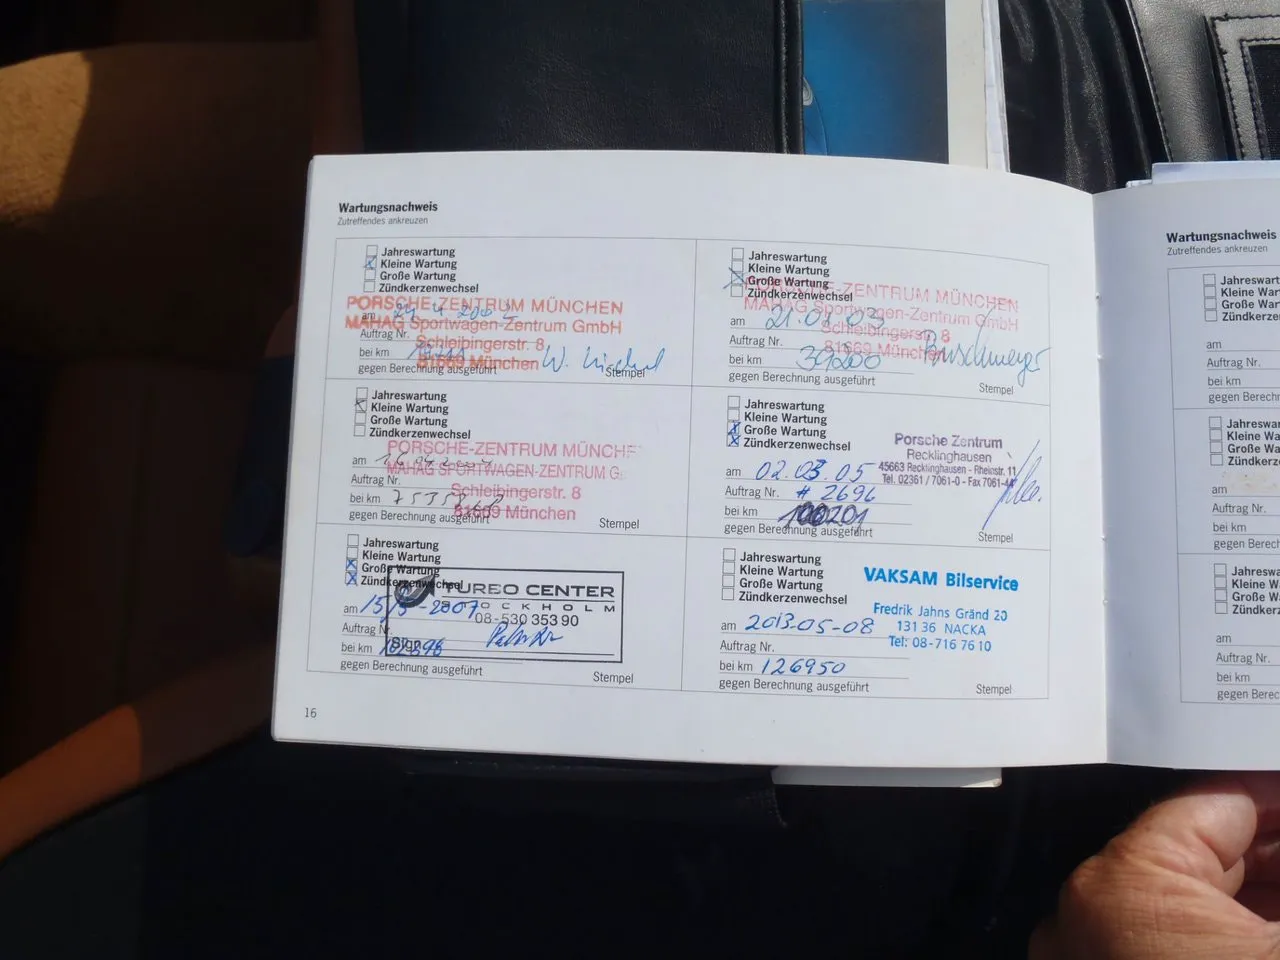 Wartungsnachweis
Zutreffendes ankreuzen
Jahreswartung
Kleine Wartung
Große Wartung
Zündkerzenwechsel
PORSCHE-ZENTRUM MÜNCHEN
MAHAG Sportwagen-Zentrum GmbH
Schleibingerstr. 8
81669 München
am
Auftrag Nr.
bei km
gegen Berechnung ausgeführt
Stempel
Jahreswartung
Kleine Wartung
Große Wartung
Zündkerzenwechsel
PORSCHE-ZENTRUM MÜNCHEN
MAHAG Sportwagen-Zentrum GmbH
Schleibingerstr. 8
81669 München
am 21.01.03
Auftrag Nr.
bei km 39200
gegen Berechnung ausgeführt
Stempel
Jahreswartung
Kleine Wartung
Große Wartung
Zündkerzenwechsel
PORSCHE-ZENTRUM MÜNCHE
MAHAG SPORTWAGEN-ZENTRUM G
Schleibingerstr. 8
81669 München
am
Auftrag Nr.
bei km
gegen Berechnung ausgeführt
Stempel
Jahreswartung
Kleine Wartung
Große Wartung
Zündkerzenwechsel
Porsche Zentrum
Recklinghausen
45663 Recklinghausen - Rheinstr. 11
Tel. 02361 / 7061-0 - Fax 7061-44
am 02.03.05
Auftrag Nr. # 2696
bei km 100201
gegen Berechnung ausgeführt
Stempel
Jahreswartung
Kleine Wartung
Große Wartung
Zündkerzenwechsel
TURBO CENTER
STOCKHOLM
08-530 353 90
Sign
am
Auftrag Nr.
bei km
gegen Berechnung ausgeführt
Stempel
Jahreswartung
Kleine Wartung
Große Wartung
Zündkerzenwechsel
VAKSAM Bilservice
Fredrik Jahns Gränd 20
131 36 NACKA
Tel: 08-716 76 10
am 2013-05-08
Auftrag Nr.
bei km 126950
gegen Berechnung ausgeführt
Stempel
16
Wartungsnachweis
Zutreffendes ankreuzen
Jahreswart
Kleine Wart
Große Wart
Zündkerzen
am
Auftrag Nr.
bei km
gegen Berechn
Jahreswa
Kleine Wa
Große Wa
Zündkerz
am
Auftrag Nr.
bei km
gegen Berech
Jahresw
Kleine W
Große W
Zündker
am
Auftrag Nr.
bei km
gegen Berec